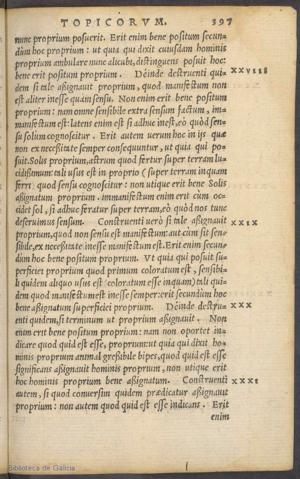 TOPICORVM. 397
nunc proprium posuerit. Erit enim bene positum secun-
dùm hoc proprium: ut quia qui dixit cuiusdam hominis
proprium ambulare nunc alicubi, distinguens posuit hoc:
bene erit positum proprium. Deinde destruenti qui- XXVIII
dem si tale aßignauit proprium, quod manifestum non
est aliter inesse quàm sensu. Non enim erit bene positum
proprium: nam omne sensibile extra sensum factum, im-
manifestum est: latens enim est si adhuc inest, eò quòd sen-
su solum cognoscitur. Erit autem uerum hoc in ijs quæ
non ex necessitate semper consequuntur, ut quia qui po-
suit Solis proprium, astrum quod fertur super terram lu-
cidissimum: tali usus est in proprio (super terram inquam
ferri) quod sensu cognoscitur: non utique erit bene Solis
aßignatum proprium. immanifestum enim erit cùm oc-
cidet sol, si adhuc feratur super terram, eò quòd nos tunc
deseruimus sensum. Construenti uerò si tale aßignauit XXIX
proprium, quod non sensu est manifestum: aut cùm sit sen-
sibile, ex necessitate inesse manifestum est. Erit enim secun-
dùm hoc bene positum proprium. Vt quia qui posuit su-
perficiei proprium quod primum coloratum est, sensibi-
li quidem aliquo usus est (coloratum esse inquam) tali qui-
dem quod manifestum est inesse semper: erit secundùm hoc
bene aßignatum superficiei proprium. Deinde destru- XXX
enti quidem, si terminum ut proprium aßignauit. Non
enim erit bene positum proprium: nam non oportet in-
dicare quod quid est esse, proprium: ut quia qui dixit ho-
minis proprium animal gressibile bipes, quod quid est esse
significans aßignauit hominis proprium, non utique erit
hoc hominis proprium bene aßignatum. Construenti XXXI
autem, si quod conuersim quidem prædicatur aßignauit
proprium: non autem quod quid est esse indicans. Erit
enim
Biblioteca de Galicia